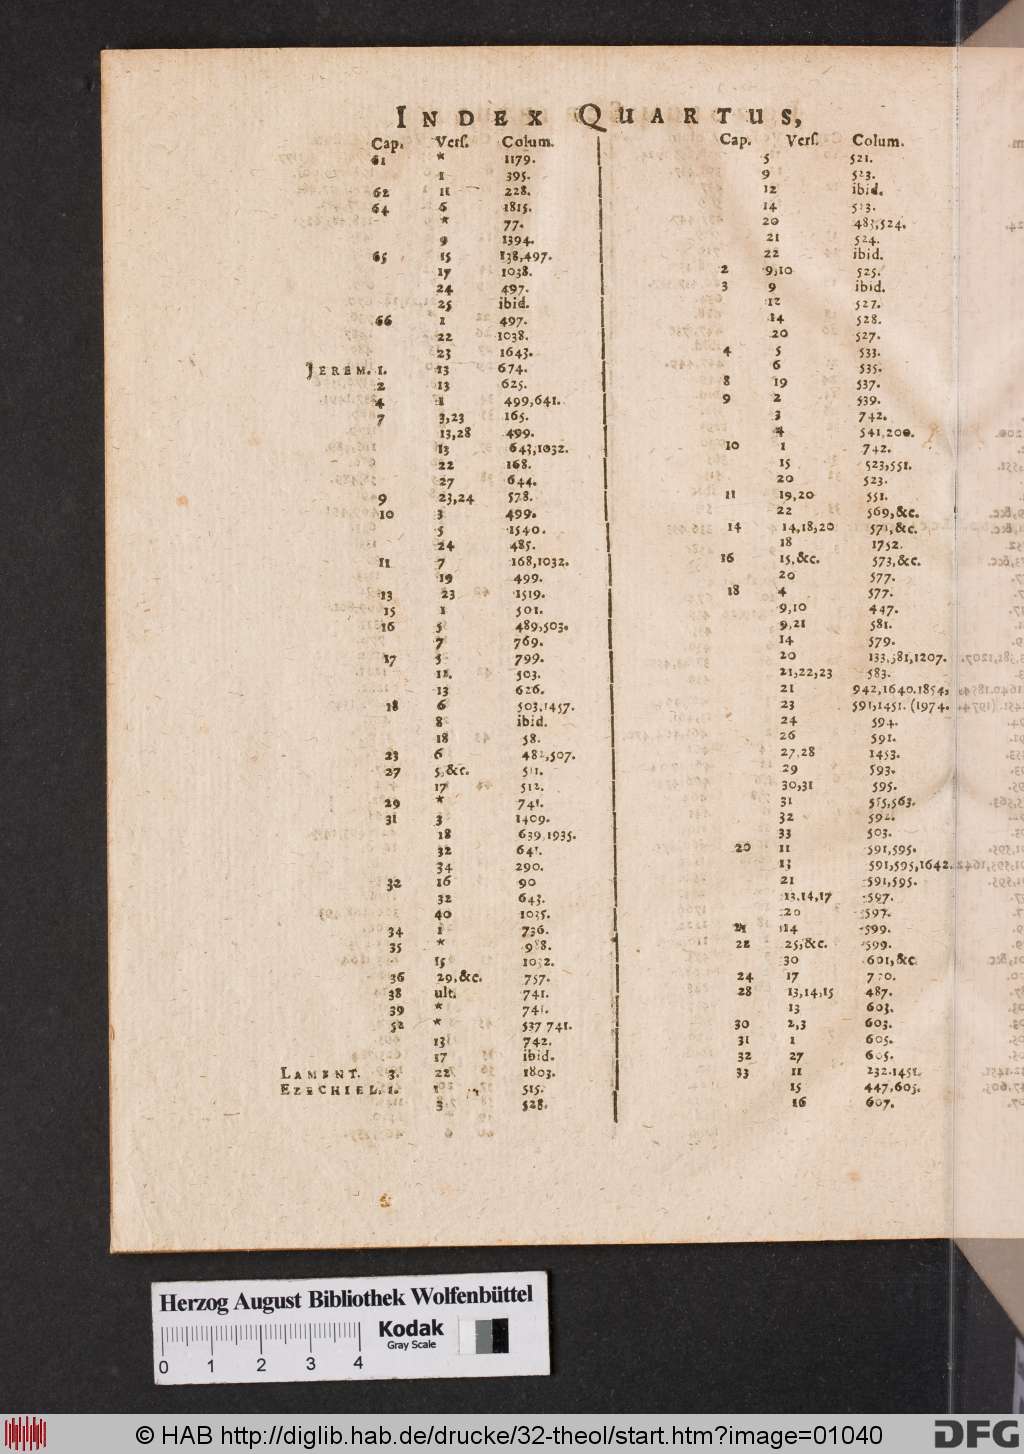 INDEX QUARTUS,
Cap. Vers. Colum.
61 * 1179.
1 395.
62 11 228.
64 6 1815.
* 77.
9 1394.
65 15 138,497.
17 1038.
24 497.
25 ibid.
66 1 497.
22 1038.
23 1643.
JEREM. 1. 13 674.
2 13 625.
4 1 499,641.
7 3,23 165.
13,28 499.
13 643,1032.
22 168.
27 644.
9 23,24 578.
10 3 499.
5 1540.
24 485.
11 7 168,1032.
19 499.
13 23 1519.
15 1 501.
16 5 489,503.
7 769.
17 5 799.
11. 503.
13 626.
18 6 503.1457.
8 ibid.
18 58.
23 6 482,507.
27 5,&c. 511.
17 512.
29 * 741.
31 3 1409.
18 639,1935.
32 641.
34 290.
32 16 90
32 643.
40 1035.
34 1 736.
35 * 988.
15 1032.
36 29,&c. 757.
38 ult. 741.
39 * 741.
52 * 537 741.
13 742.
17 ibid.
LAMENT. 3. 22 1803.
EZECHIEL. 1. 1 515.
3 528.
Cap. Vers. Colum.
5 521.
9 523.
12 ibid.
14 513.
20 483,524.
21 524.
22 ibid.
2 9,10 525.
3 9 ibid.
12 527.
14 528.
20 527.
4 5 533.
6 535.
8 19 537.
9 2 539.
3 742.
4 541,200.
10 1 742.
15 523,551.
20 523.
11 19,20 551.
22 569,&c.
14 14,18,20 571,&c.
18 1752.
16 15,&c. 573,&c.
20 577.
18 4 577.
9,10 447.
9,21 581.
14 579.
20 133,581,1207.
21,22,23 583.
21 942,1640.1854,
23 591,1451. (1974.
24 594.
26 591.
27,28 1453.
29 593.
30,31 595.
31 555,563.
32 592.
33 503.
20 11 591,595.
13 591,595,1642.
21 591,595.
13,14,17 597.
20 597.
21 14 599.
22 25,&c. 599.
30 601,&c.
24 17
28 13,14,15 487.
13 603.
30 2,3 603.
31 1 605.
32 27 605.
33 11 232.1451.
15 447,605.
16 607.
Herzog August Bibliothek Wolfenbüttel
Kodak
Gray Scale
0 1 2 3 4
© HAB http://diglib.hab.de/drucke/32-theol/start.htm?image=01040
DFG